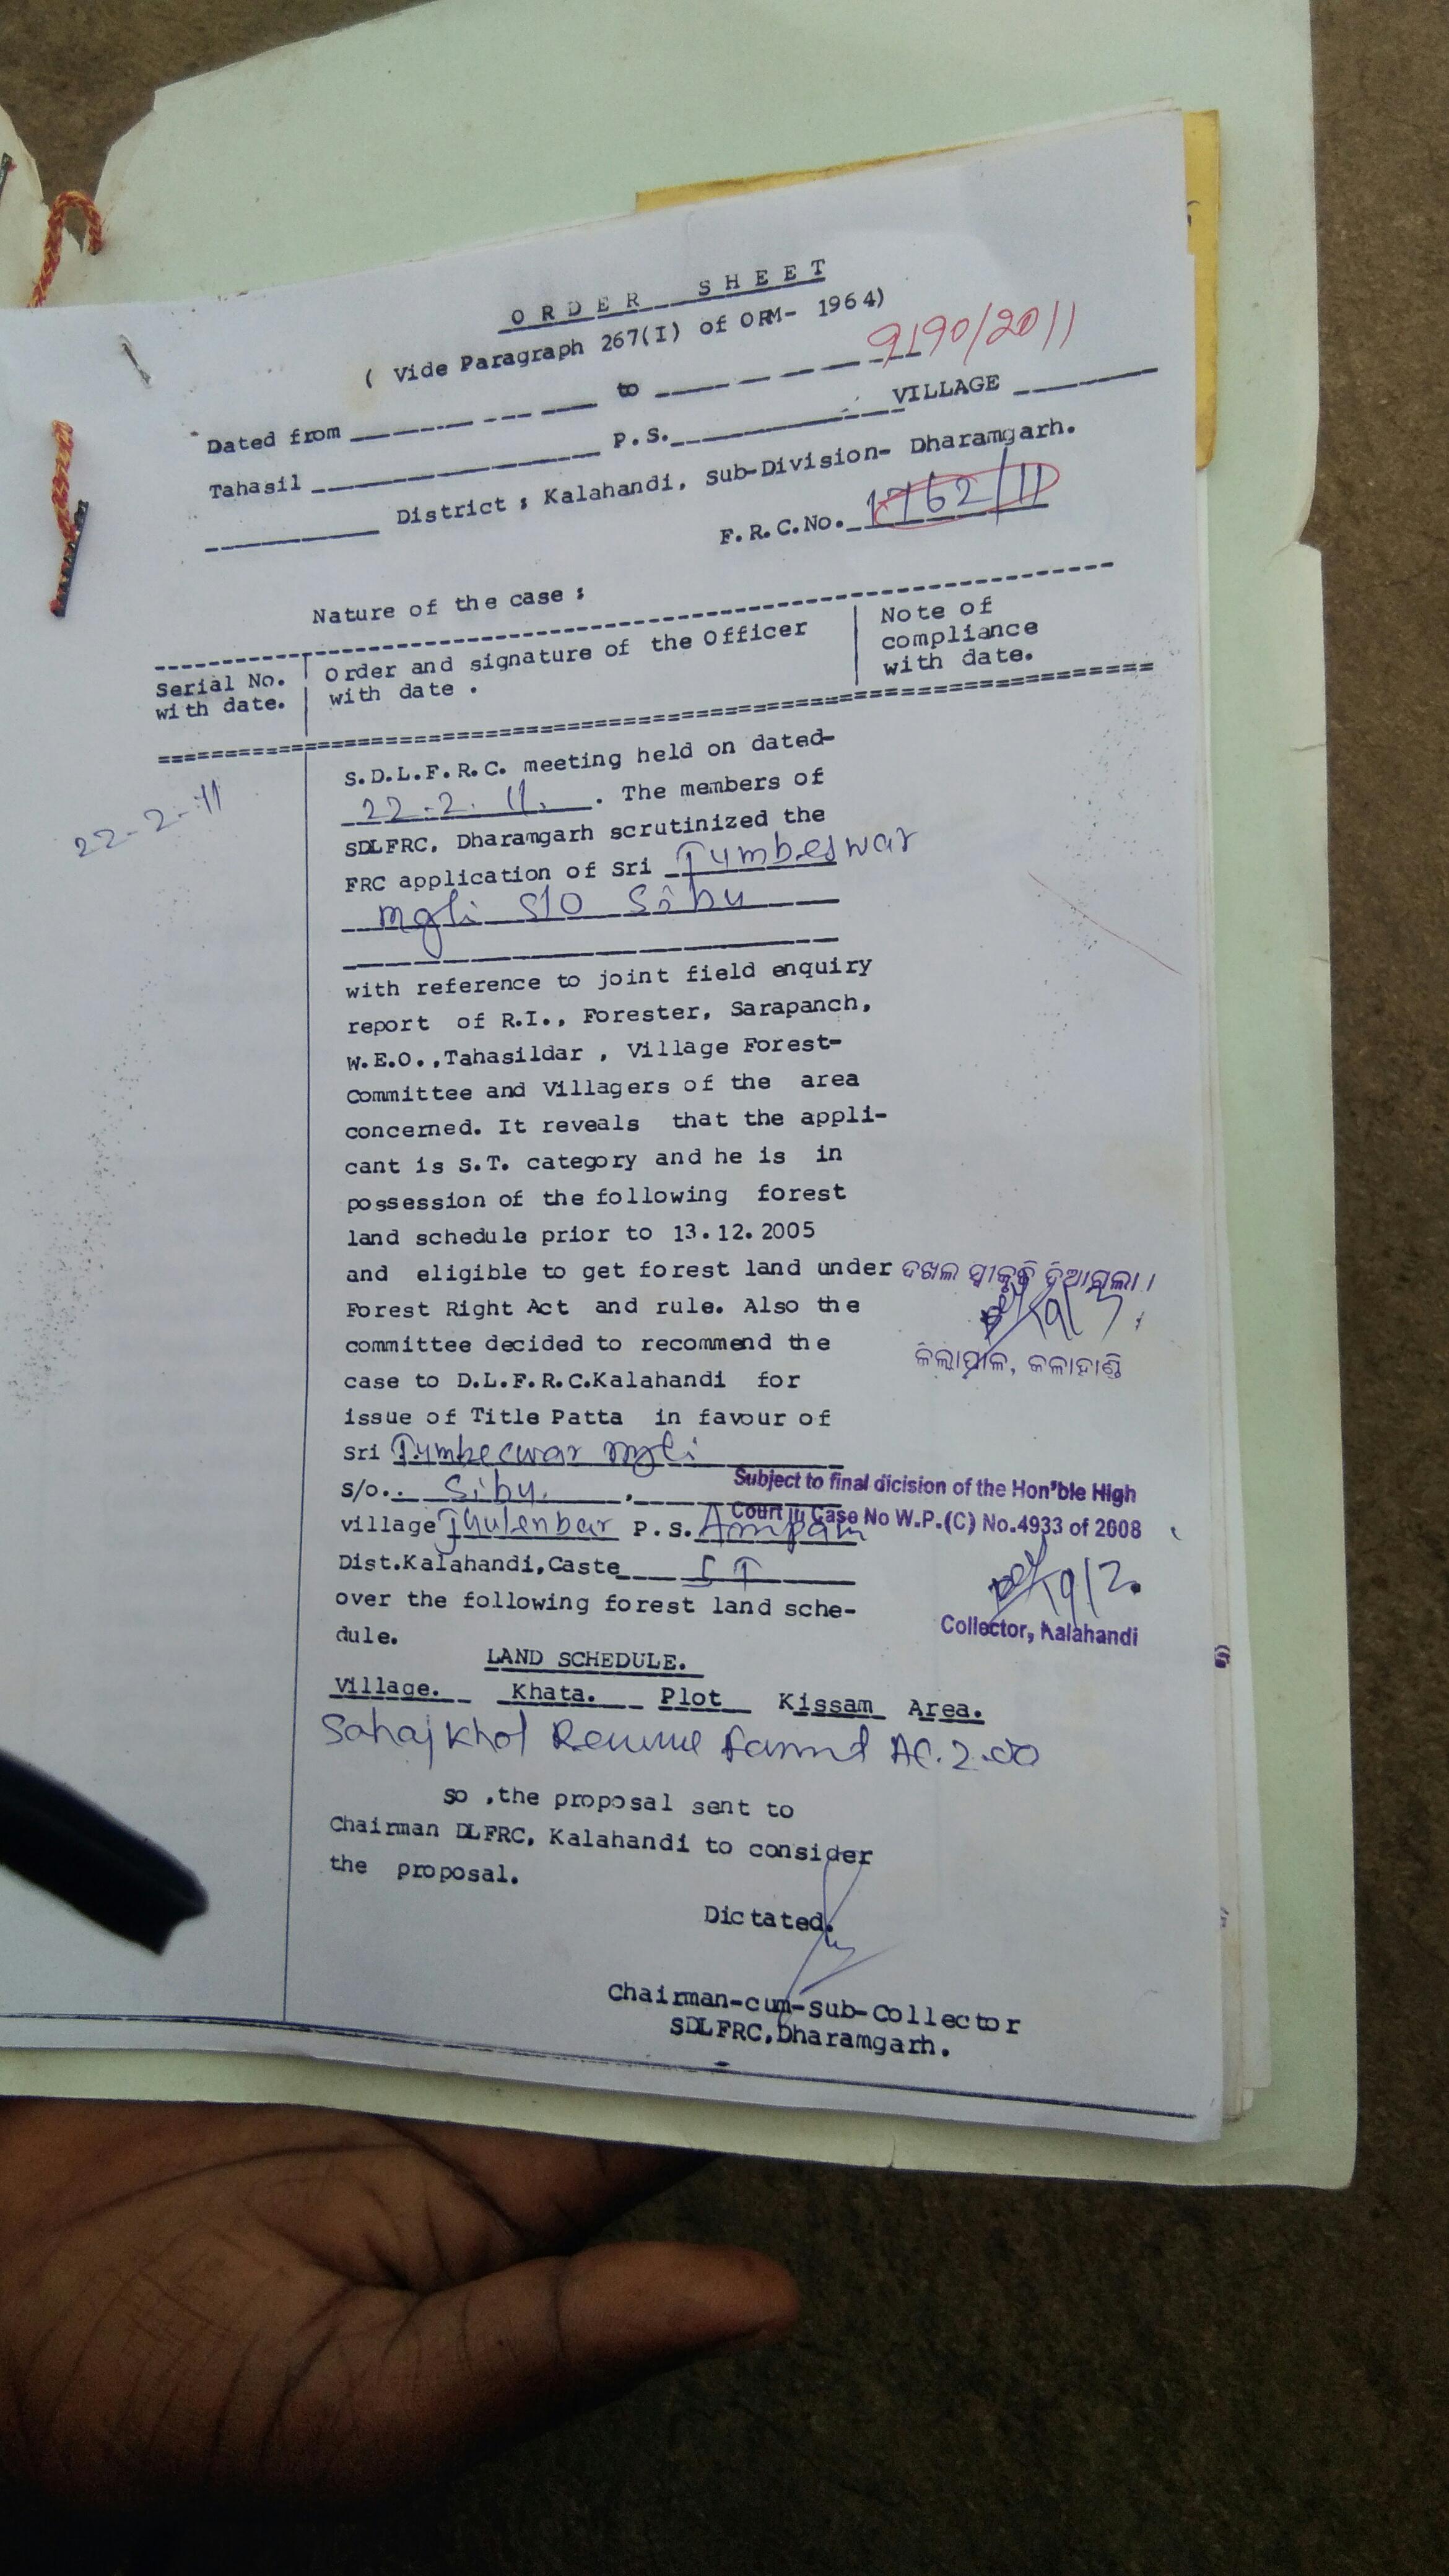 ORDER SHEET
( Vide Paragraph 267(I) of ORM- 1964)
9190/2011
Dated from to
Tahasil P.S. VILLAGE
District : Kalahandi, Sub-Division- Dharamgarh.
F.R.C.No. 1762/11
Nature of the case :
Serial No. with date.
Order and signature of the Officer with date .
Note of compliance with date.
22-2-11
S.D.L.F.R.C. meeting held on dated-
22-2-11. . The members of
SDLFRC, Dharamgarh scrutinized the
FRC application of Sri Tumbeswar
S/O Sibu
with reference to joint field enquiry
report of R.I., Forester, Sarapanch,
W.E.O.,Tahasildar , Village Forest-
Committee and Villagers of the area
concerned. It reveals that the appli-
cant is S.T. category and he is in
possession of the following forest
land schedule prior to 13.12.2005
and eligible to get forest land under
ଦଖଲ ସ୍ୱୀକୃତି ଦିଆଗଲା ।
Forest Right Act and rule. Also the
committee decided to recommend the
ଜିଲ୍ଲାପାଳ, କଳାହାଣ୍ଡି
case to D.L.F.R.C.Kalahandi for
issue of Title Patta in favour of
Sri Tumbeswar
Subject to final dicision of the Hon'ble High
Court in Case No W.P.(C) No.4933 of 2008
S/o.. Sibu.
village P.S. Ampani
Dist.Kalahandi,Caste ST
over the following forest land sche-
dule.
Collector, Kalahandi
LAND SCHEDULE.
Village. Khata. Plot Kissam Area.
Sahajkhol Revenue Forest AC.2.00
so ,the proposal sent to
Chairman DLFRC, Kalahandi to consider
the proposal.
Dictated.
Chairman-cum-Sub-Collector
SDLFRC,Dharamgarh.